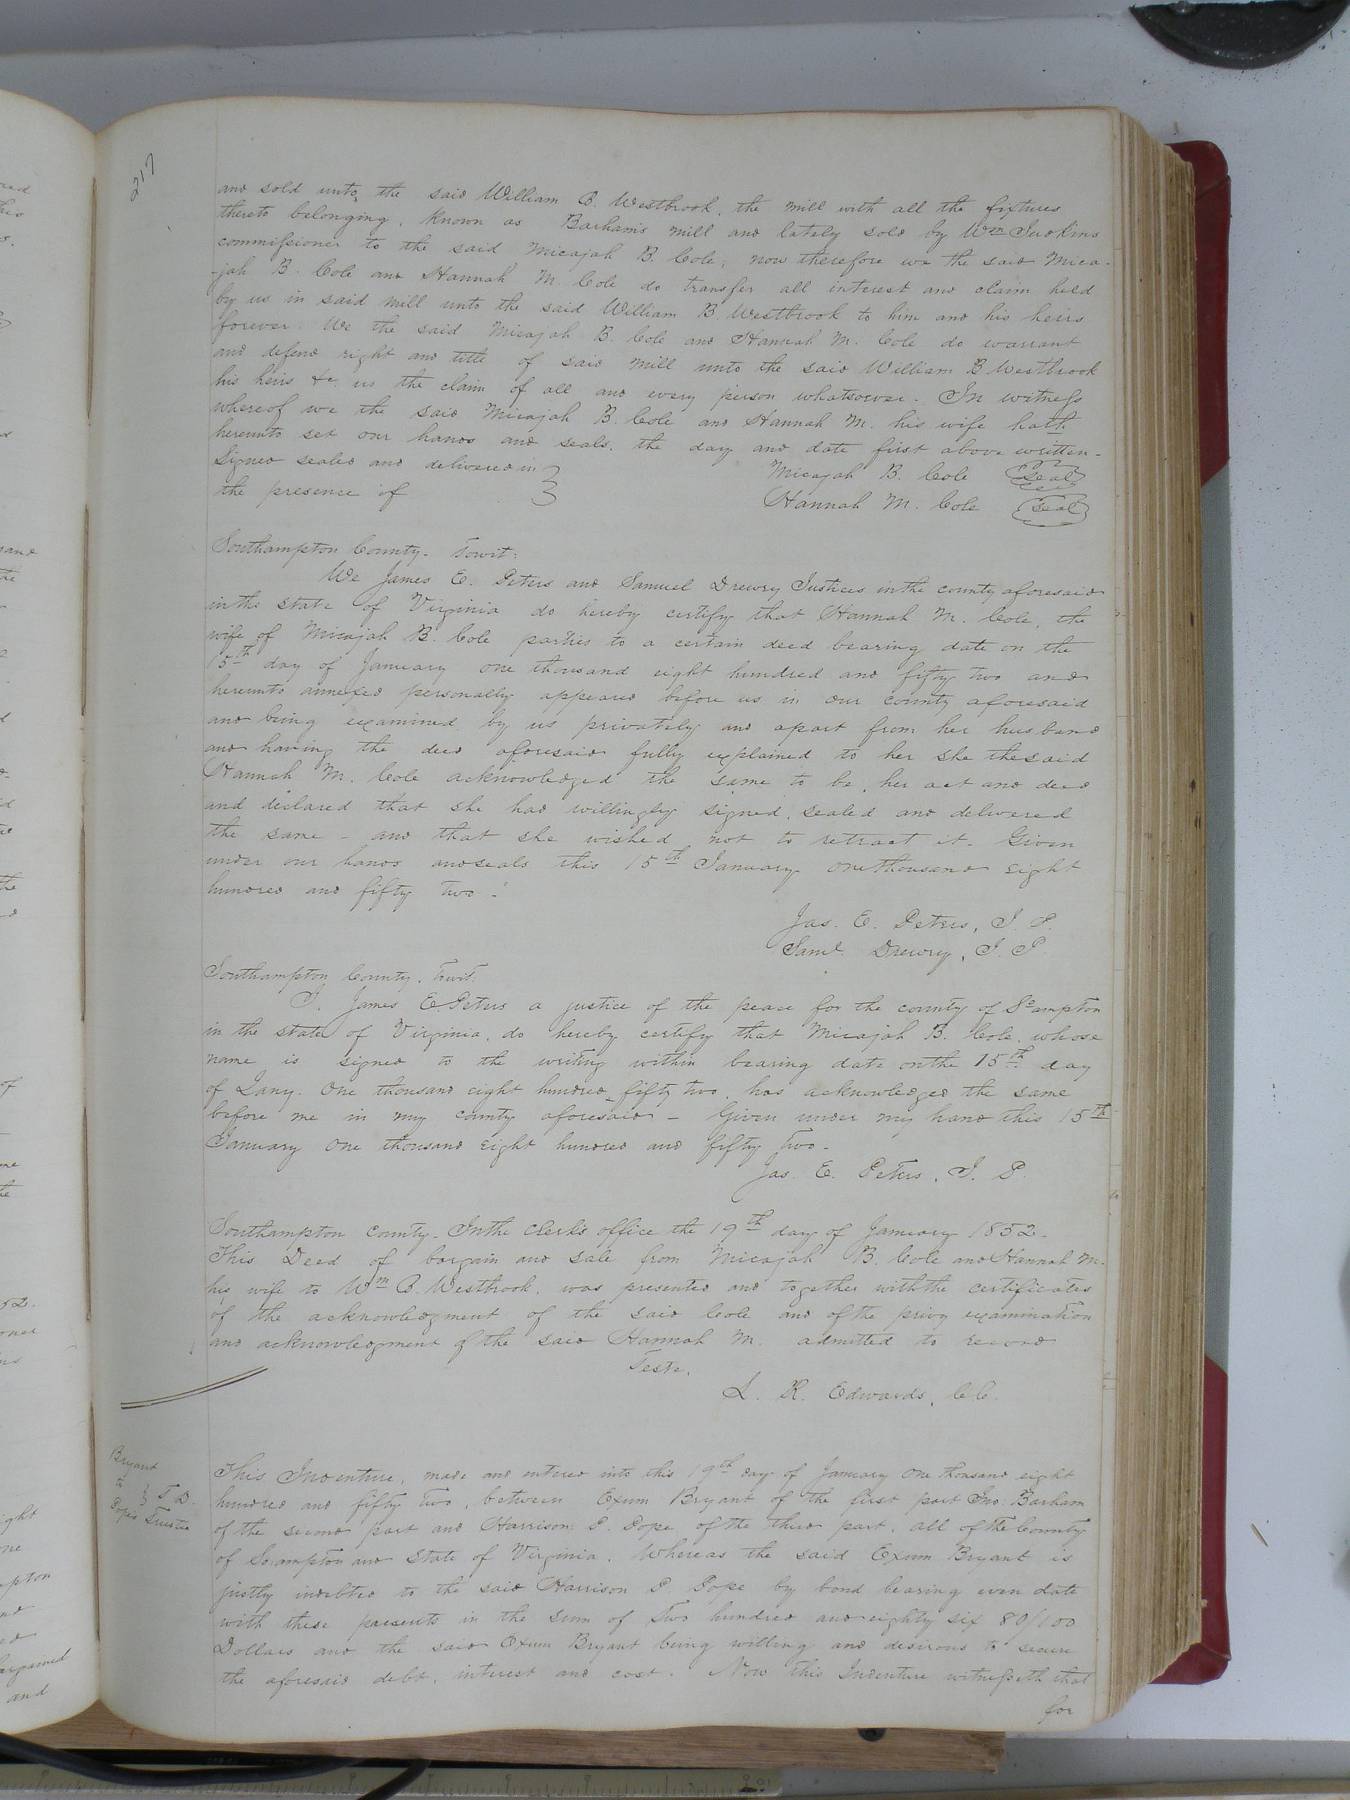 217
and sold unto the said William B. Westbrook, the mill with all the fixtures
thereto belonging, known as Barhams mill and lately sold by Wm Judkins
commissioner to the said Micajah B. Cole; now therefore we the said Mica-
-jah B. Cole and Hannah M. Cole do transfer all interest and claim held
by us in said mill unto the said William B. Westbrook to him and his heirs
forever. We the said Micajah B. Cole and Hannah M. Cole do warrant
and defend right and title of said mill unto the said William B Westbrook
his heirs &c us the claim of all and every person whatsoever. In witness
whereof we the said Micajah B. Cole and Hannah M. his wife hath
hereunto set our hands and seals, the day and date first above written-
Signed sealed and delivered in Micajah B. Cole Seal
the presence of Hannah M. Cole Seal
Southampton County. Towit:
We James E. Peters and Samuel Drewry Justices in the county aforesaid
in the state of Virginia do hereby certify that Hannah M. Cole, the
wife of Micajah B. Cole parties to a certain deed bearing date on the
15th day of January one thousand eight hundred and fifty two and
hereunto annexed personally appeared before us in our county aforesaid
and being examined by us privately and apart from her husband
and having the deed aforesaid fully explained to her she the said
Hannah M. Cole acknowledged the same to be her act and deed
and declared that she had willingly signed, sealed and delivered
the same - and that she wished not to retract it. Given
under our hands and seals this 15th January one thousand eight
hundred and fifty two -
Jas. E. Peters, J. P.
Saml Drewry, J. P.
Southampton County, Towit.
I, James E. Peters a justice of the peace for the county of So ampton
in the state of Virginia, do hereby certify that Micajah B. Cole, whose
name is signed to the writing within bearing date on the 15th day
of Jany. One thousand eight hundred fifty two, has acknowledged the same
before me in my county aforesaid - Given under my hand this 15th
January one thousand eight hundred and fifty two -
Jas. E. Peters, J. P.
Southampton County. In the Clerk's office the 19th day of January 1852.
This Deed of bargain and sale from Micajah B. Cole and Hannah M.
his wife to Wm B. Westbrook, was presented and together with the certificates
of the acknowledgment of the said Cole and of the privy examination
and acknowledgment of the said Hannah M. admitted to record
Teste,
L. R. Edwards, C.C.
Bryant
to T. D.
Popes Trustee
This Indenture, made and entered into this 19th day of January one thousand eight
hundred and fifty two, between Exum Bryant of the first part Jno. Barham
of the second part and Harrison P. Pope of the third part, all of the County
of So ampton and State of Virginia. Whereas the said Exum Bryant is
justly indebted to the said Harrison P. Pope by bond bearing even date
with these presents in the sum of two hundred and eighty six 80/100
Dollars and the said Exum Bryant being willing and desirous to secure
the aforesaid debt, interest and cost. Now this Indenture witnesseth that
for